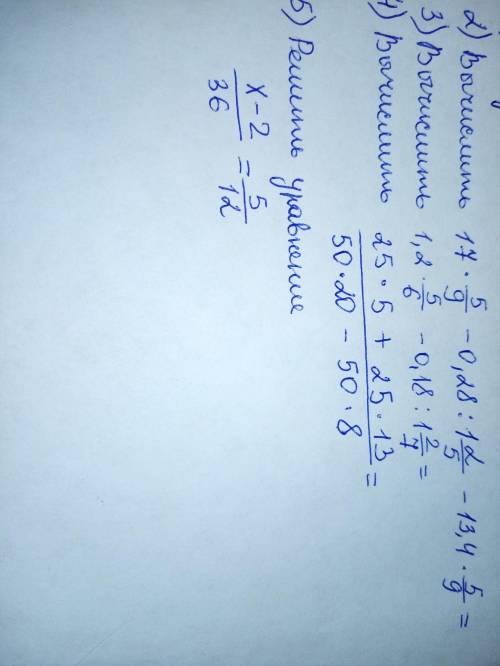 2) Вычислить 17 · 5/9 - 0,28 : 1 2/5 - 13,4 · 5/9 =
3) Вычислить 1,2 · 5/6 - 0,18 : 1 2/7 =
4) Вычислить (25 · 5 + 25 · 13)/(50 · 20 - 50 · 8) =
5) Решить уравнение
(x - 2)/36 = 5/12